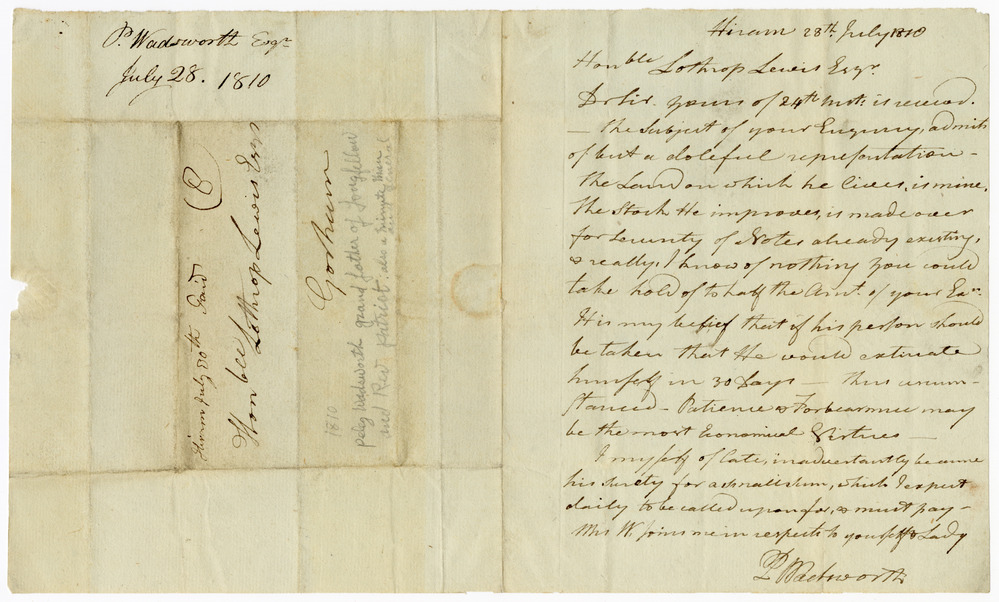 P. Wadsworth Esqr
July 28. 1810
Hiram July 30th Paid
(8
Honble
Lothrop Lewis Esqr
Gorham
1810
peleg wadsworth grand father of Longfellow
and Rev. patriot. also a
general
Hiram 28th July 1810
Honble Lothrop Lewis Esqr.
Dr Sir. yours of 24th Inst: is receved.
— the Subject of your Enquiry, admits
of but a doleful representation –
the Land on which he lives, is mine,
the Stock He improves, is made over
for Security of Notes already existing,
& really, I know of nothing you could
take hold of to half the Amt. of your Exn.
It is my belief that if his person should
be taken that He would extricate
himself in 30 Days — thus circum-
stanced – Patience & Forbearance may
be the most Economical Virtues —
I myself of late, inadvertantly became
his surety for a small sum, which I expect
daily to be called upon for, & must pay –
Mrs W. joins me in respects to yourself & Lady
P Wadsworth